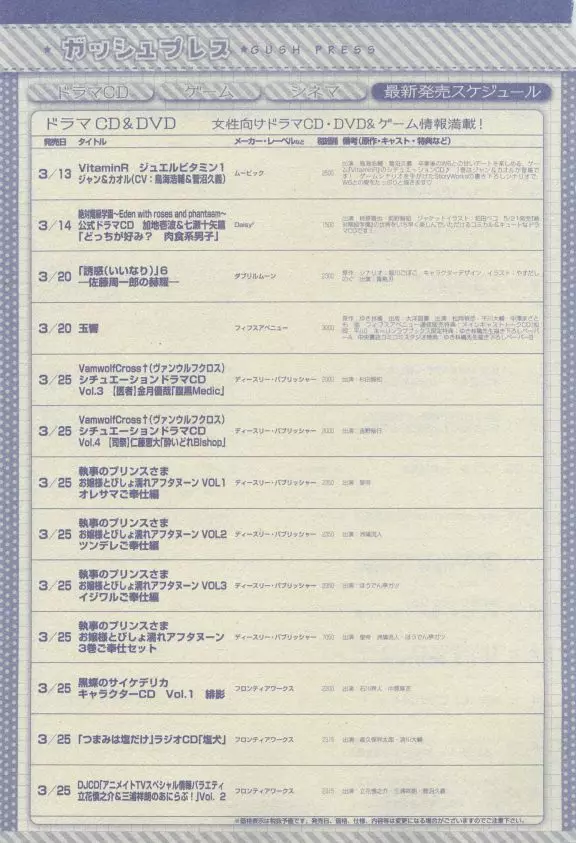 ガッシュプレス
GUSH PRESS
ドラマCD
ゲーム
シネマ
最新発売スケジュール
ドラマCD&DVD 女性向けドラマCD・DVD&ゲーム情報満載!
発売日 タイトル メーカー・レーベルなど 備考(原作・キャスト・特典など)
3/13 VitaminR ジュエルビタミン1
ジャン&カオル(CV:鳥海浩輔&菅沼久義) ムービック
3/14 絶対階級学園~Eden with roses and phantasm~
公式ドラマCD 加地壱波&七瀬十矢篇
「どっちが好み? 肉食系男子」 Daisy²
3/20 「誘惑(いいなり)」6
―佐藤周一郎の
ダブリルムーン
3/20 玉響 フィフスアベニュー 3000
3/25 VamwolfCross†(ヴァンウルフクロス)
シチュエーションドラマCD
Vol.3 【医者】金月優哉「腹黒Medic」
ディースリー・パブリッシャー 2000
3/25 VamwolfCross†(ヴァンウルフクロス)
シチュエーションドラマCD
Vol.4 【司祭】仁藤恵大「酔いどれBishop」
ディースリー・パブリッシャー 2000
3/25 執事のプリンスさま
お嬢様とびしょ濡れアフタヌーン VOL1
オレサマご奉仕編
ディースリー・パブリッシャー 2350
3/25 執事のプリンスさま
お嬢様とびしょ濡れアフタヌーン VOL2
ツンデレご奉仕編
ディースリー・パブリッシャー 2350
3/25 執事のプリンスさま
お嬢様とびしょ濡れアフタヌーン VOL3
イジワルご奉仕編
ディースリー・パブリッシャー 2350 出演:ほうでん亭ガツ
3/25 執事のプリンスさま
お嬢様とびしょ濡れアフタヌーン
3巻ご奉仕セット
ディースリー・パブリッシャー 7050
3/25 黒蝶のサイケデリカ
キャラクターCD Vol.1 緋影
フロンティアワークス 2200 出演:石川界人
3/25 「つまみは塩だけ」ラジオCD「塩犬」 フロンティアワークス 2315 出演:森久保祥太郎・浪川大輔
3/25 DJCD「アニメイトTVスペシャル情報バラエティ
立花慎之介&三浦祥朗のあにらぶ!」Vol. 2
フロンティアワークス 2315 出演:立花慎之介 三浦祥朗 菅沼久義
※価格表示は税抜予価です。発売日、価格、仕様、内容等は変更になる場合がございますのでご注意下さい。